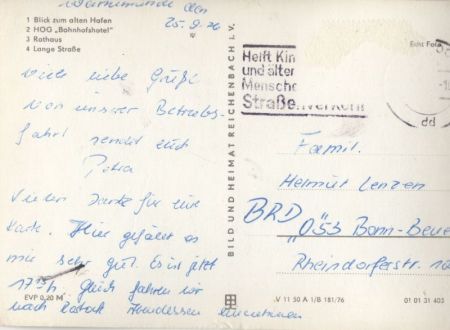 Warnemünde den
25.9.76
1 Blick zum alten Hafen
2 HOG „Bahnhofshotel"
3 Rathaus
4 Lange Straße
Viele liebe Grüße
von unserer Betriebs-
fahrt sendet euch
Petra
Vielen Danke für eure
Karte. Hier gefällt es
mir sehr gut. Es ist jetzt
17 h. Gleich fahren wir
nach Rostock Abendessen einnehmen
EVP 0,20 M
BILD UND HEIMAT REICHENBACH I. V.
Echt Foto
Helft Kin
und älter
Mensche
Straßenverkehr
Famil.
Helmut Lenzen
BRD 053 Bonn-Beue
Rheindorferstr. 10
V 11 50 A 1/B 181/76
01 01 31 403